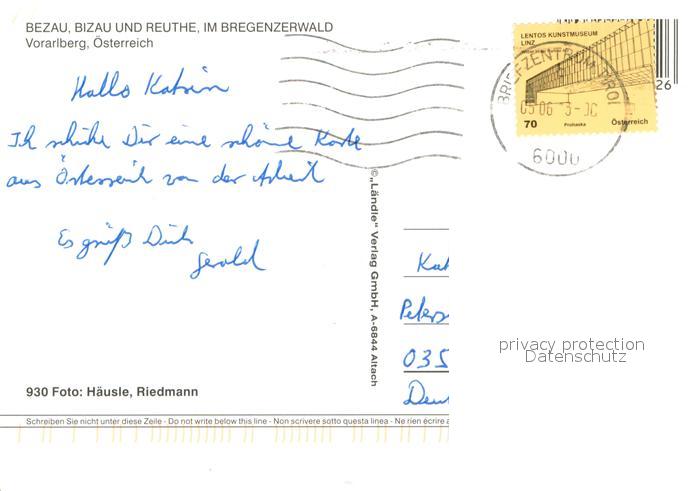 BEZAU, BIZAU UND REUTHE, IM BREGENZERWALD
Vorarlberg, Österreich
Hallo Katrin
Ich schicke Dir eine schöne Karte
aus Österreich von der Arbeit
Es grüß Dich
Gerold
930 Foto: Häusle, Riedmann
Schreiben Sie nicht unter diese Zeile - Do not write below this line - Non scrivere sotto questa linea - Ne rien écrire a
©„Ländle" Verlag GmbH, A-6844 Altach
LENTOS KUNSTMUSEUM
LINZ
70
Prohaska
Österreich
BRIEFZENTRUM TIROL
6000
26
Kat
Peters
035
Deut
privacy protection
Datenschutz